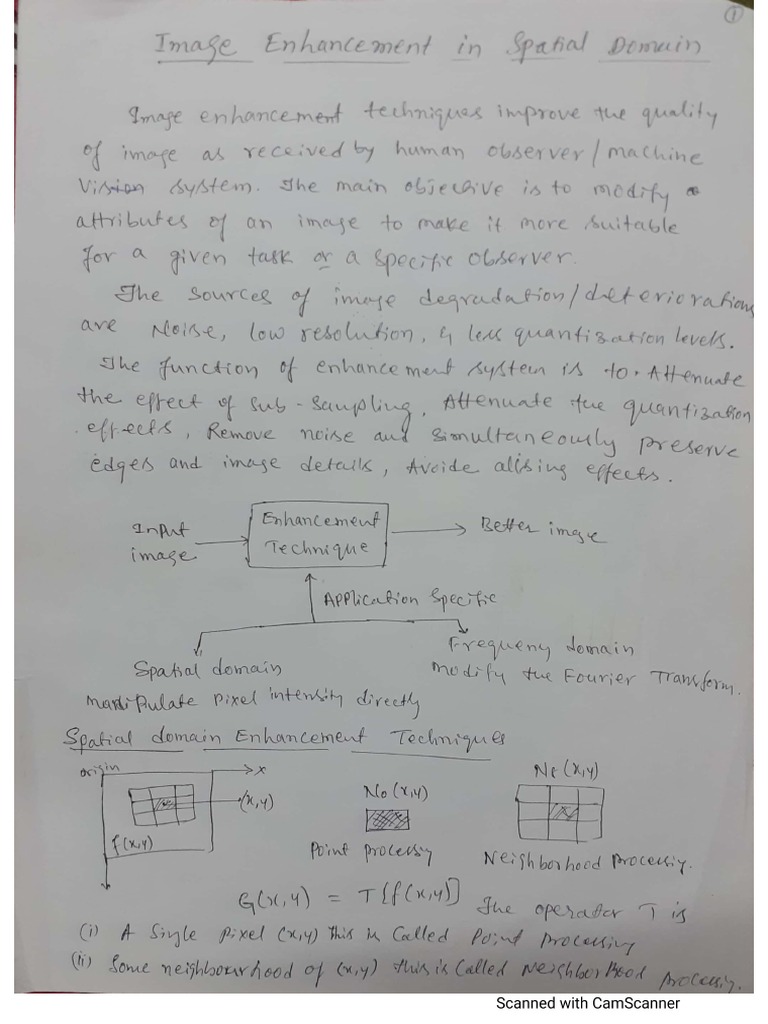 1
Image Enhancement in Spatial Domain
Image enhancement techniques improve the quality
of image as received by human observer/machine
Vision system. The main objective is to modify
attributes of an image to make it more suitable
for a given task or a specific observer.
The sources of image degradation/deteriorations
are Noise, low resolution, & less quantization levels.
The function of enhancement system is to. Attenuate
the effect of sub-sampling, Attenuate the quantization
effects, Remove noise and simultaneously preserve
edges and image details, Avoide alising effects.
Input image
Enhancement Technique
Better image
Application Specific
Spatial domain
Manipulate pixel intensity directly
Frequeny domain
Modify the Fourier Transform.
Spatial domain Enhancement Techniques
origin
x
(x,y)
f(x,y)
No(x,y)
Point processing
Ne(x,y)
Neighborhood Processiy.
G(x,y) = T{f(x,y)] The operator T is
(i) A Single pixel (x,y) this is Called Point Processing
(ii) Some neighbourhood of (x,y) this is Called Neighborhood Processiy.
Scanned with CamScanner